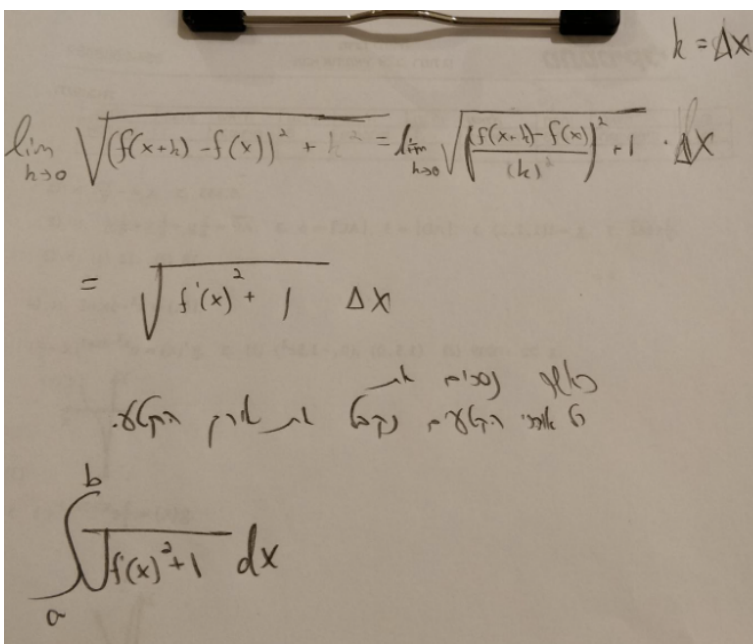 h = Δx
lim h→0 √((f(x+h) - f(x))² + h²) = lim h→0 √(((f(x+h) - f(x))/(h)²)² + 1) · Δx
= √(f'(x)² + 1) Δx
כאשר נסכום את
כל אורכי הקטעים נקבל את אורך הקטע.
∫ₐᵇ √(f'(x)² + 1) dx